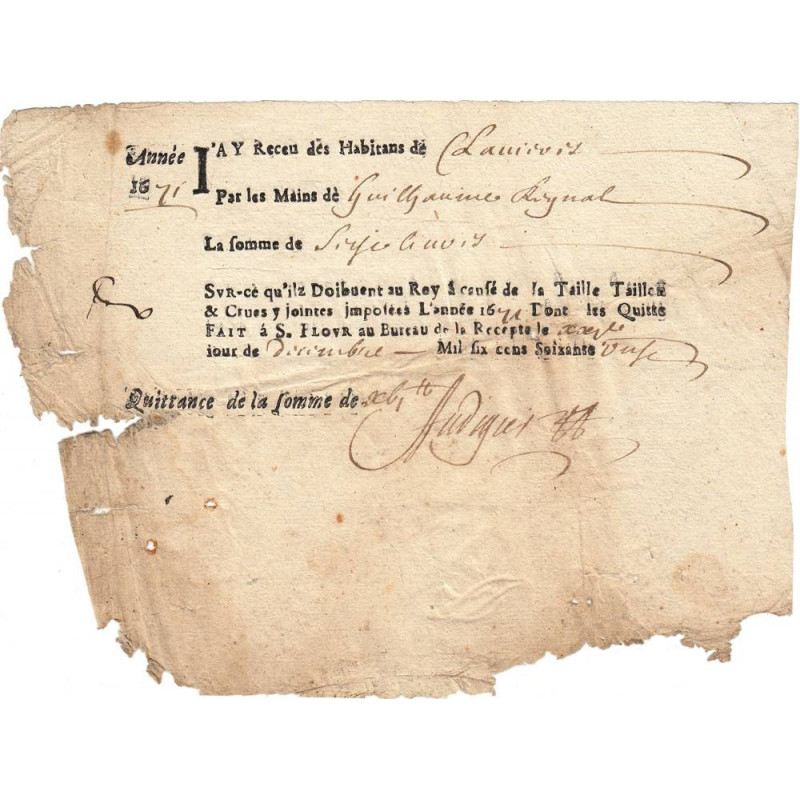 Année
1671
I'AY Receu dês Habitans dê
Par les Mains dè Guilhaume Reynal
La somme de Seize livres
SVR-cè qu'ilz Doibuent au Roy á causê de la Taille Taillon
& Crues y jointes imposées L'année 1671 Dont les Quitte
FAIT á S. FLOVR au Bureau de la Recepte le
iour de Decembre Mil six cens Soixante Unze
Quittance de la somme de xbj tt
Audigier